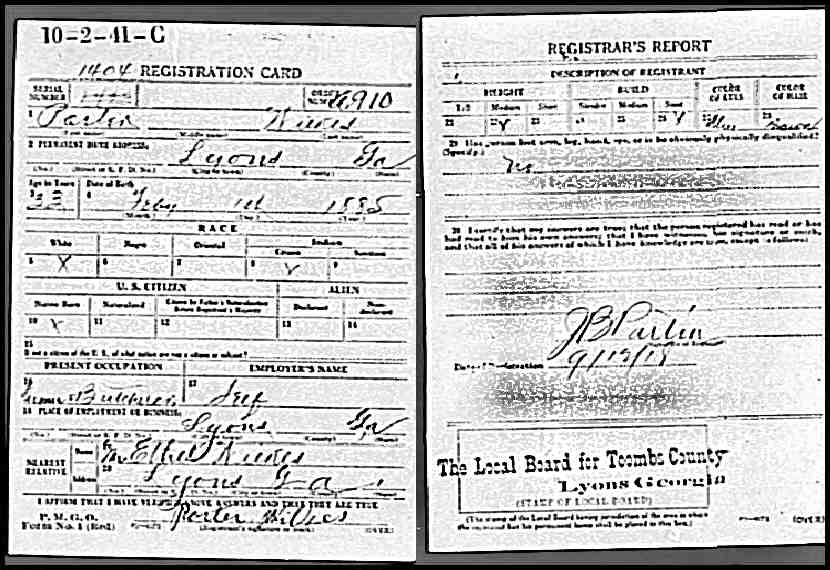 10-2-41-C
1404 REGISTRATION CARD
SERIAL NUMBER
ORDER NUMBER A910
1 Porter
(First name) (Middle name) (Last name)
2 PERMANENT HOME ADDRESS:
Lyons Ga
(No.) (Street or R. F. D. No.) (City or town) (County) (State)
Age in Years Date of Birth
3 33 4 Feby 1st 1885
(Month) (Day) (Year)
RACE
White Negro Oriental Indian
Citizen Noncitizen
5 X 6 7 8 9
U. S. CITIZEN ALIEN
Native Born Naturalized Citizen by Father's Naturalization Before Registrant's Majority Declarant Non-declarant
10 11 12 13 14
15
If not a citizen of the U. S., of what nation are you a citizen or subject?
PRESENT OCCUPATION EMPLOYER'S NAME
16 17
Self
18 PLACE OF EMPLOYMENT OR BUSINESS:
Lyons Ga
(No.) (Street or R. F. D. No.) (City or town) (County) (State)
NEAREST RELATIVE
Name 19 Ethel
Address 20 Lyons Ga
(No.) (Street or R. F. D. No.) (City or town) (State)
I AFFIRM THAT I HAVE VERIFIED ABOVE ANSWERS AND THAT THEY ARE TRUE
P. M. G. O.
Form No. 1 (Red)
Porter
(Registrant's signature or mark) (OVER)
REGISTRAR'S REPORT
DESCRIPTION OF REGISTRANT
HEIGHT BUILD COLOR OF EYES COLOR OF HAIR
Tall Medium Short Slender Medium Stout
21 22 23 24 25 26 27 28
Blue Brown
29 Has person lost arm, leg, hand, eye, or is he obviously physically disqualified?
(Specify.)
No
30 I certify that my answers are true; that the person registered has read or has
had read to him his own answers; that I have witnessed his signature or mark,
and that all of his answers of which I have knowledge are true, except as follows:
J B Partin
Date of Registration 9/12/18
The Local Board for Toombs County
Lyons Georgia
(STAMP OF LOCAL BOARD)
(The stamp of the Local Board having jurisdiction of the area in which
the registrant has his permanent home shall be placed in this box.)
(OVER)